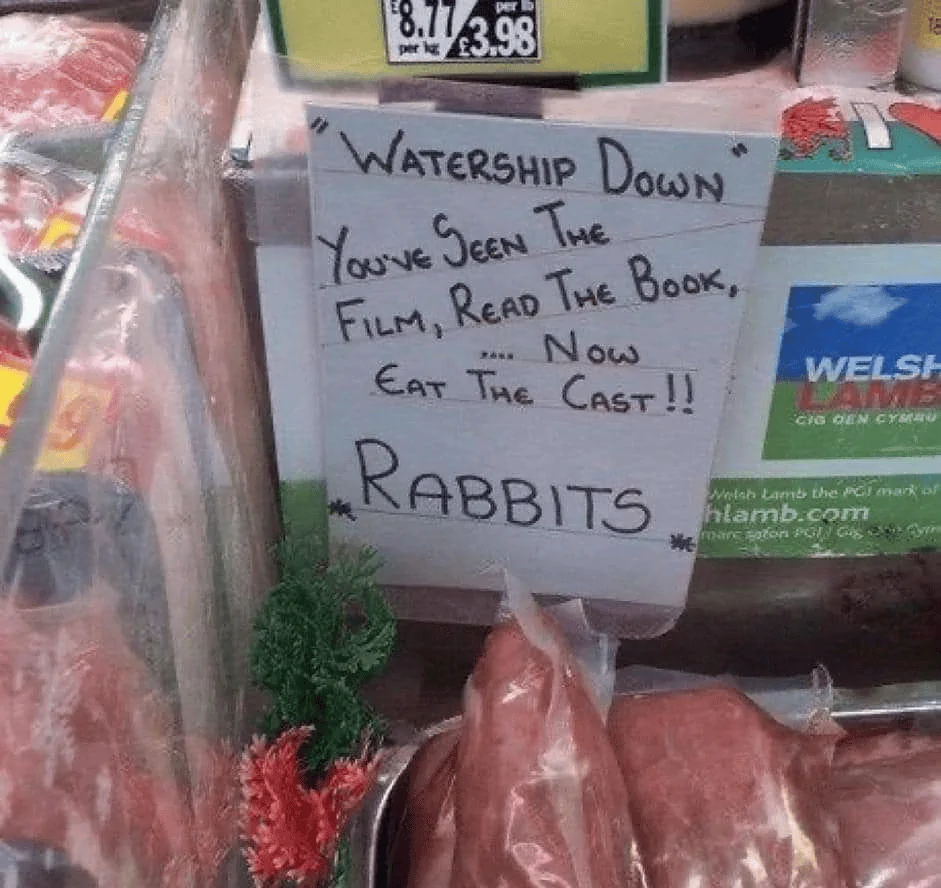 £8.77 per lb
per kg £3.98
" WATERSHIP DOWN "
YOU'VE SEEN THE
FILM, READ THE BOOK,
.... NOW
EAT THE CAST !!
* RABBITS *
WELSH
LAMB
CIG OEN CYMRU
Welsh Lamb the PGI mark of
hlamb.com
PGI